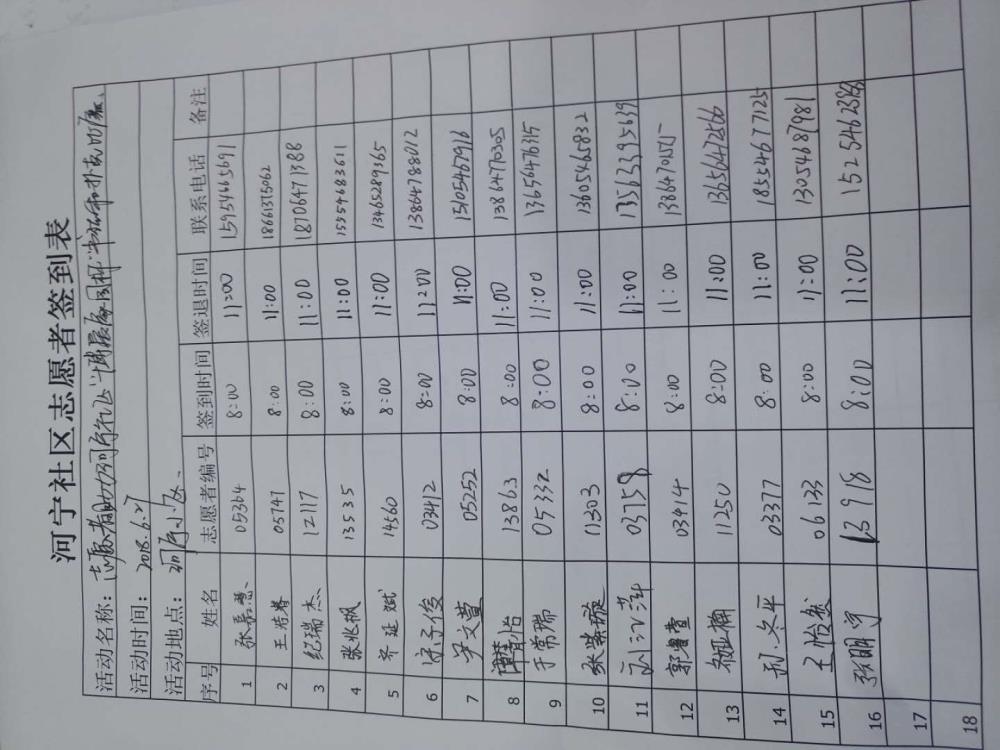 河宁社区志愿者签到表
活动名称：志愿者助力河宁社区
活动时间：2018.6.27
活动地点：河宁小区、
序号 姓名 志愿者编号 签到时间 签退时间 联系电话 备注
1 张 05364 8:00 11:00 15954665691
2 王 05747 8:00 11:00 18661375062
3 纪瑞杰 12117 8:00 11:00 18706471388
4 张兆枫 13535 8:00 11:00 15554683611
5 齐延斌 14560 8:00 11:00 13465289365
6 宋子俊 03412 8:00 11:00 13864788012
7 尹文萱 05252 8:00 11:00 15105467916
8 13863 8:00 11:00 13864770305
9 于常瑞 05332 8:00 11:00 13656476315
10 张 11303 8:00 11:00 13605465832
11 刘 03759 8:00 11:00 13563395639
12 郭 03414 8:00 11:00
13 11250 8:00 11:00 13656472566
14 03377 8:00 11:00 18554677125
15 王怡 06133 8:00 11:00 13054687981
16 张明宇 13918 8:00 11:00 15254623
17
18